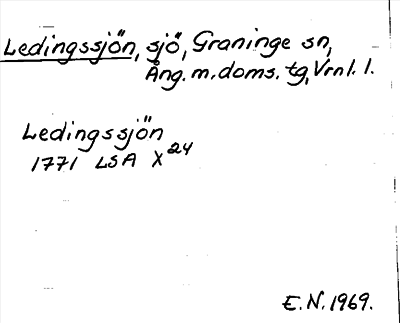 Ledingssjön, sjö, Graninge sn,
Ång. m. doms. tg, Vrnl. l.
Ledingssjön
1771 LSA X 24
E.N. 1969.